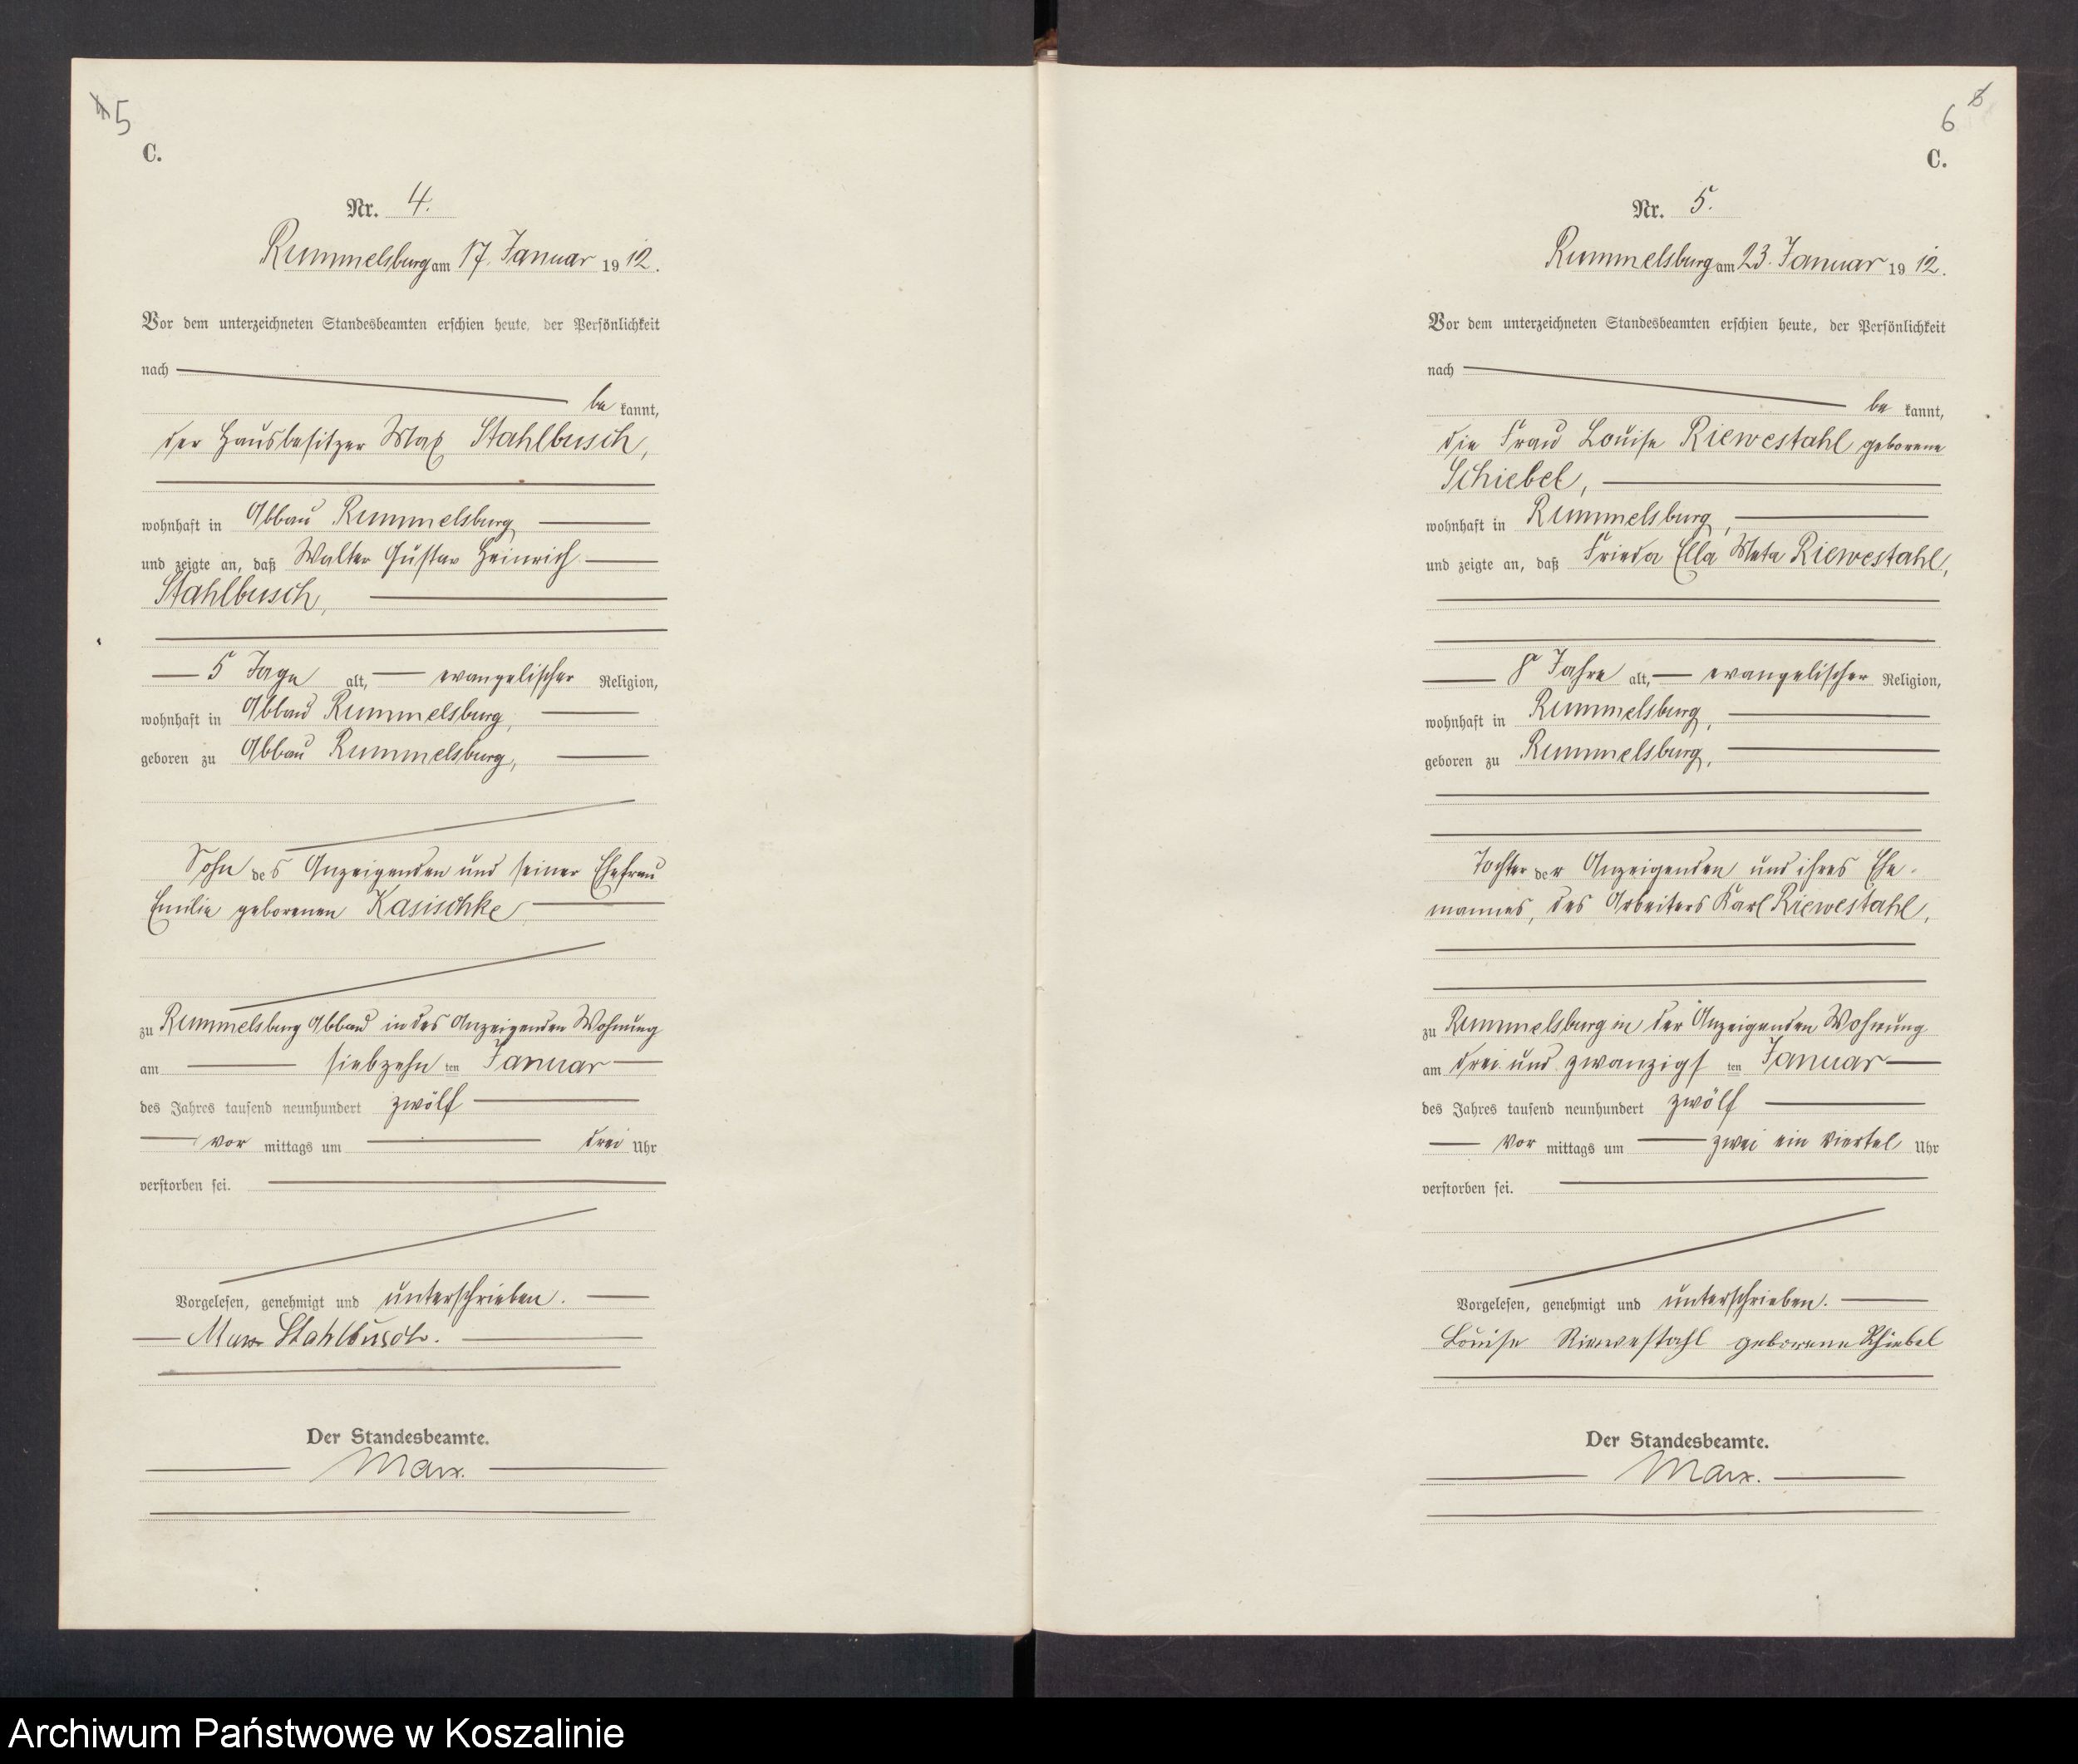 5
C.
Nr. 4.
Rummelsburg am 17. Januar 1912.
Vor dem unterzeichneten Standesbeamten erschien heute, der Persönlichkeit
nach
be kannt,
der Hausbesitzer Max Stahlbusch,
wohnhaft in Abbau Rummelsburg
und zeigte an, daß Walter Gustav Heinrich
Stahlbusch,
5 Tage alt, evangelischer Religion,
wohnhaft in Abbau Rummelsburg,
geboren zu Abbau Rummelsburg,
Sohn des Anzeigenden und seiner Ehefrau
Emilie geborenen Kasischke
zu Rummelsburg Abbau in des Anzeigenden Wohnung
am siebzehn ten Januar
des Jahres tausend neunhundert zwölf
vor mittags um drei Uhr
verstorben sei.
Vorgelesen, genehmigt und unterschrieben.
Max Stahlbusch.
Der Standesbeamte.
Marx.
6
C.
Nr. 5.
Rummelsburg am 23. Januar 1912.
Vor dem unterzeichneten Standesbeamten erschien heute, der Persönlichkeit
nach
be kannt,
die Frau Louise Riewestahl geborene
Schiebel,
wohnhaft in Rummelsburg,
und zeigte an, daß Frieda Ella Meta Riewestahl,
8 Jahre alt, evangelischer Religion,
wohnhaft in Rummelsburg,
geboren zu Rummelsburg,
Tochter der Anzeigenden und ihres Ehe-
mannes, des Arbeiters Karl Riewestahl,
zu Rummelsburg in der Anzeigenden Wohnung
am drei und zwanzigs ten Januar
des Jahres tausend neunhundert zwölf
vor mittags um zwei ein viertel Uhr
verstorben sei.
Vorgelesen, genehmigt und unterschrieben.
Louise Riewestahl geborene Schiebel
Der Standesbeamte.
Marx.
Archiwum Państwowe w Koszalinie